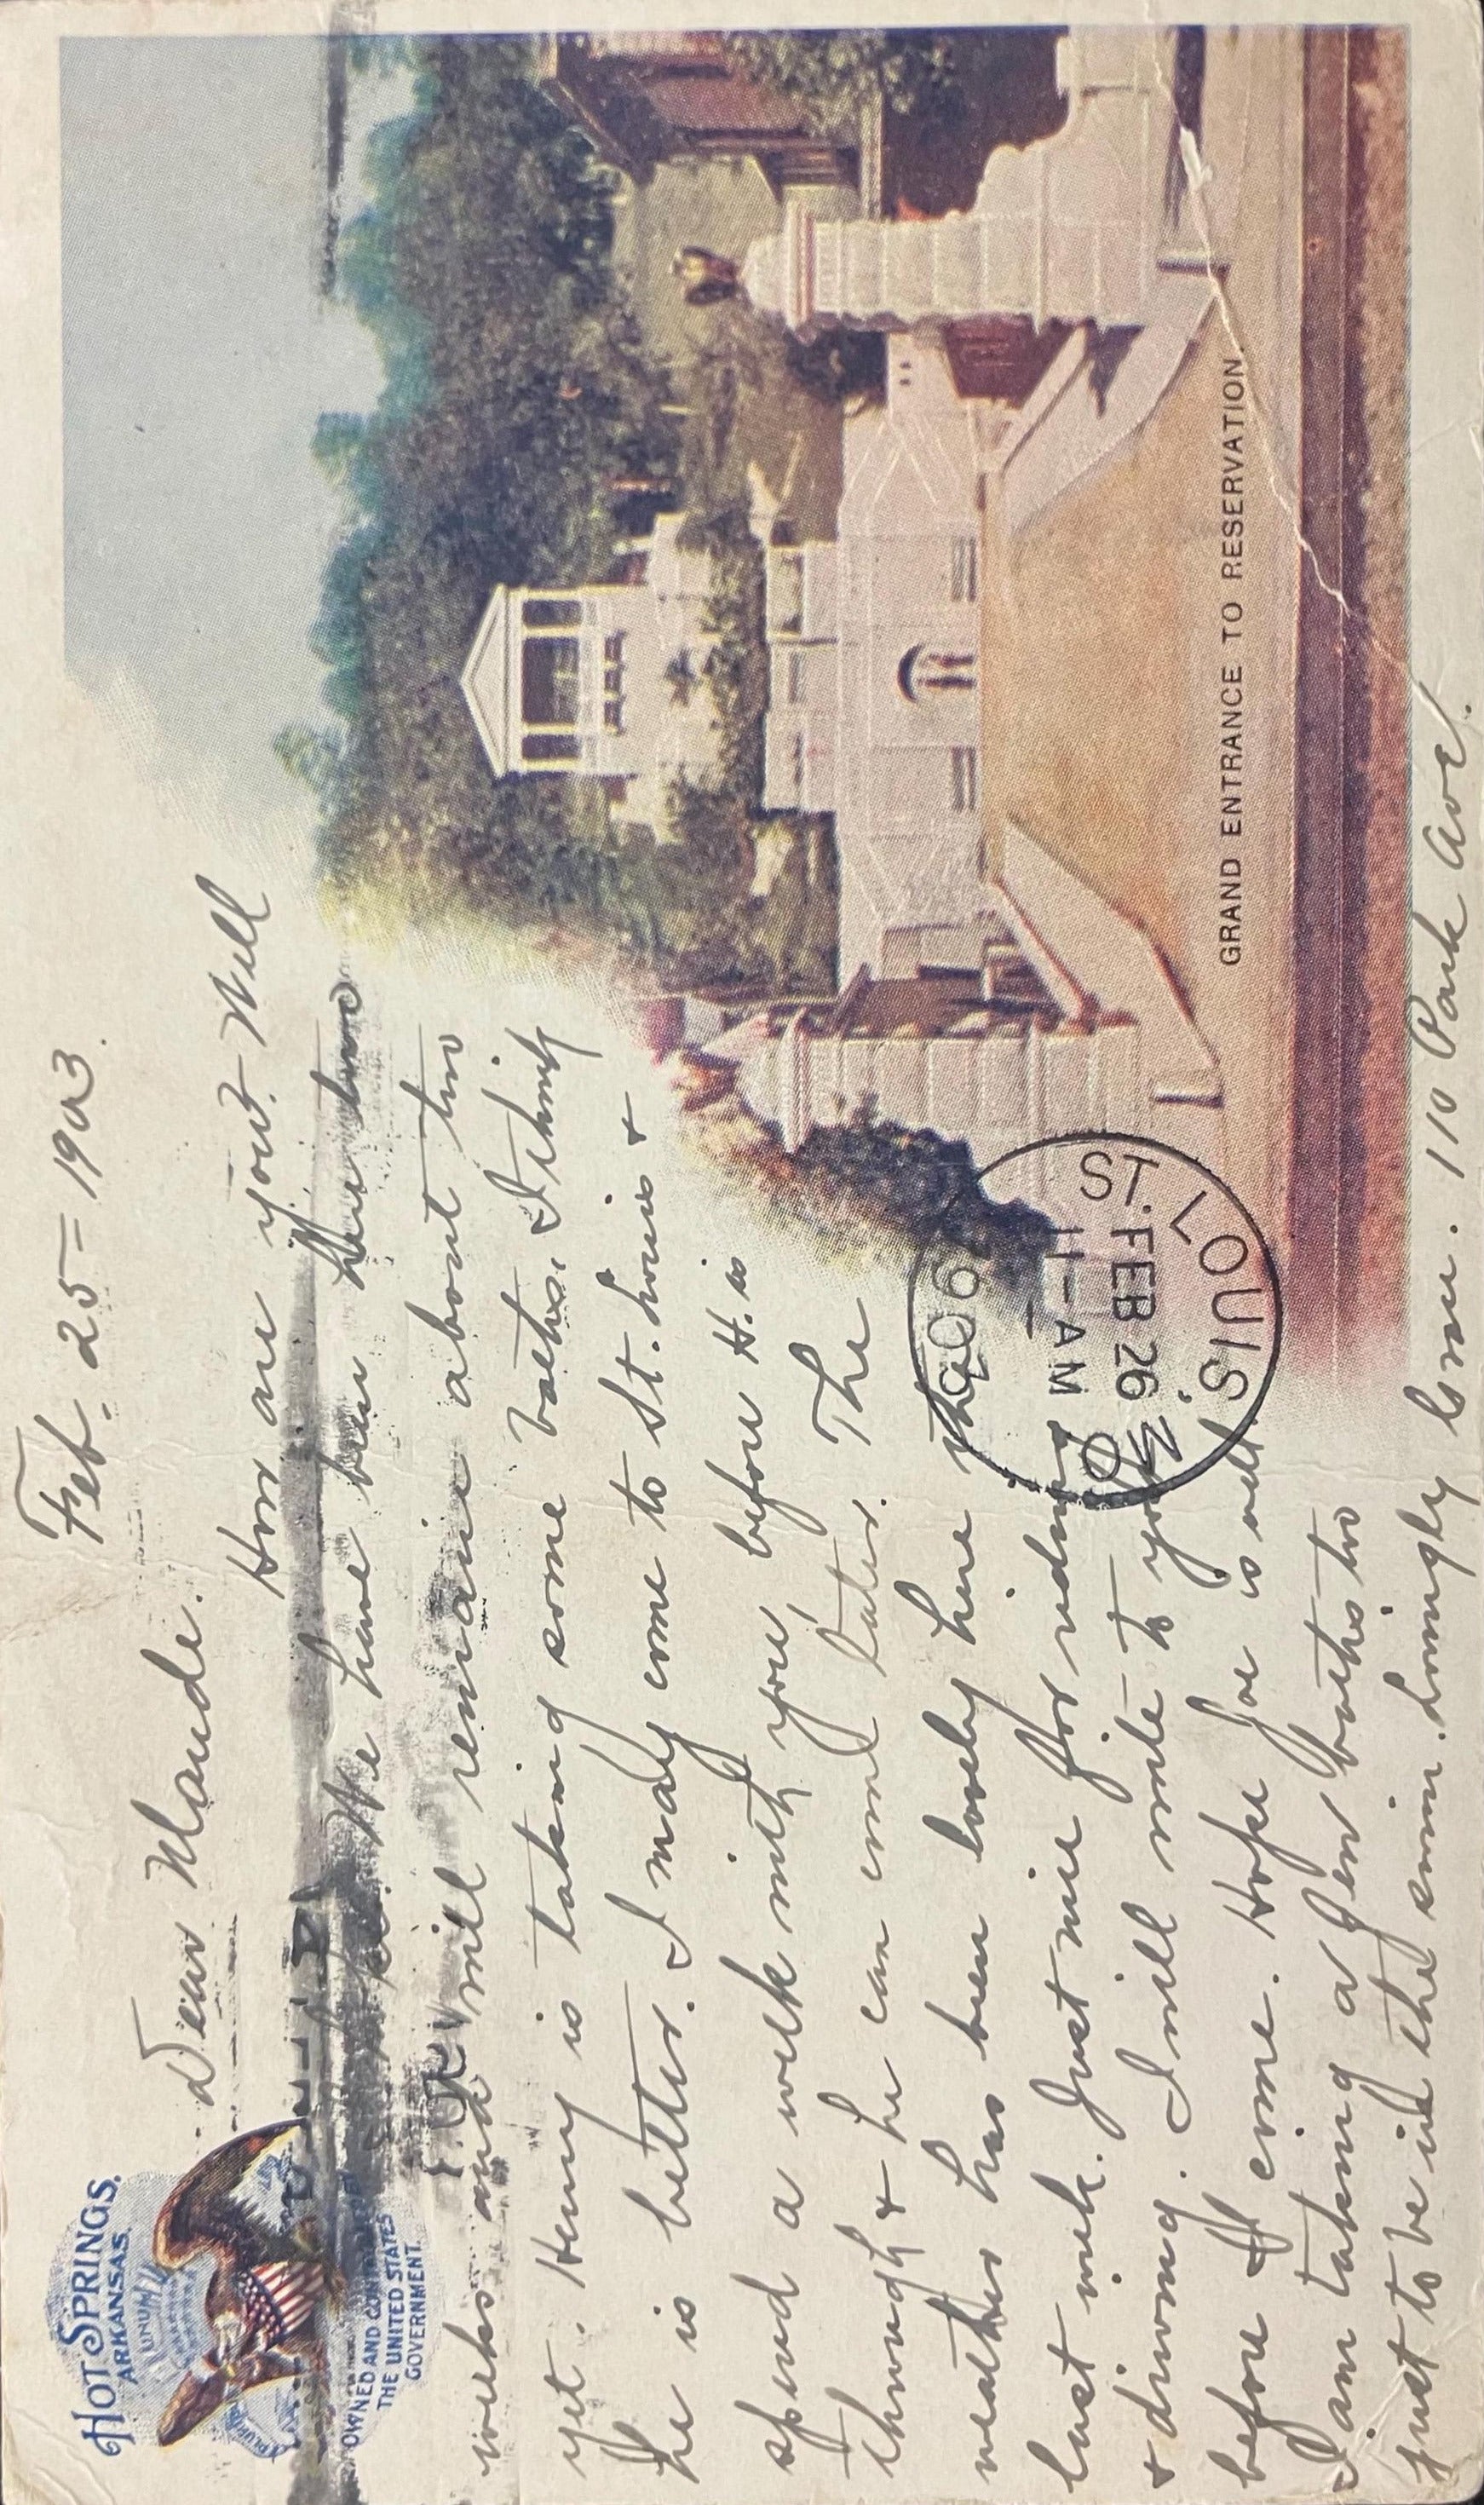 HOT SPRINGS.
ARKANSAS.
UNUM
PLURIBUS
OWNED AND CONTROLLED
THE UNITED STATES
GOVERNMENT.
Feb. 25 - 1903.
Dear Maude.
How are you? Will
We have been here two
weeks and will remain about two
yet. Henry is taking some baths, & I think
he is better. I may come to St. Louis &
spend a week with you, before H. is
through & he can come later. The
weather has been lovely here the
last week. Just nice for riding
& driving. I will write to you
before I come. Hope Joe is well
I am taking a few baths too
just to be in the swim. Lovingly
110 Park Ave.
GRAND ENTRANCE TO RESERVATION.
ST. LOUIS. MO
FEB 26
11-AM
1903